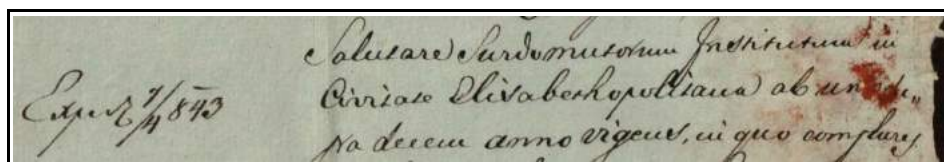 Salutare Surdomutorum Institutum in
Civitate Elisabethopolitana ab uno su„
pra decem anno vigens, in quo complures
7/4 843